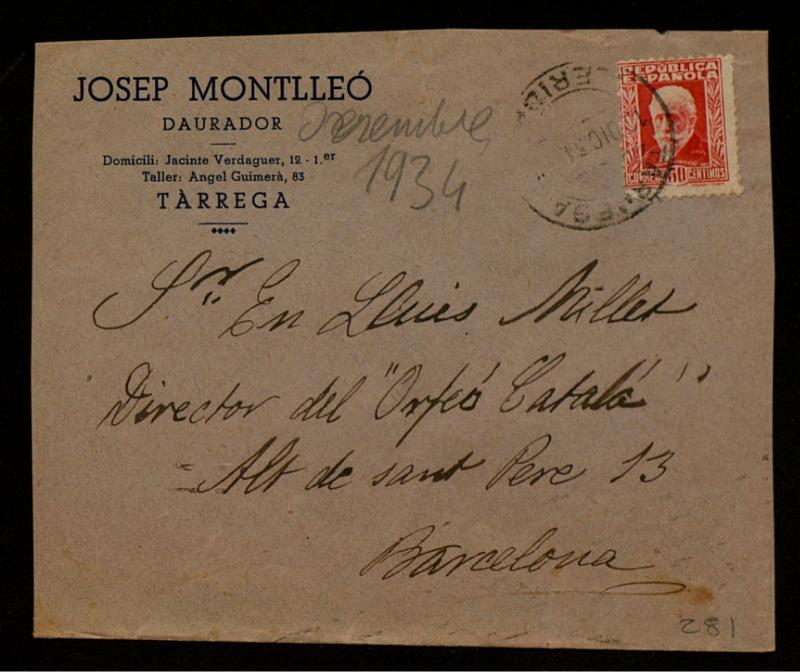 JOSEP MONTLLEÓ
DAURADOR
Domicili: Jacinte Verdaguer, 12 - 1.er
Taller: Angel Guimerà, 83
TÀRREGA
1934
REPÚBLICA
ESPAÑOLA
CORREOS CENTIMOS
Sr. En Lluis Millet
Director del "Orfeó Català"
Alt de sant Pere 13
Barcelona
281